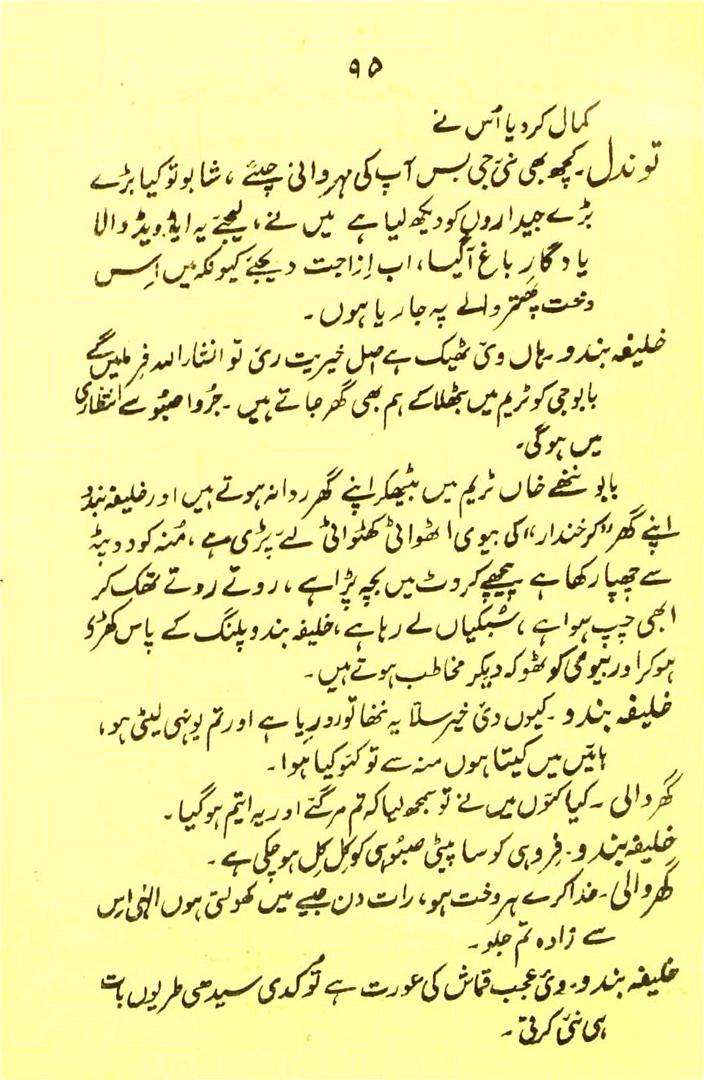 ۹۵
کمال کر دیا اُس نے
توندل۔ کچھ بھی نئیں جی بس آپ کی مہروانی چہئے، شابو تو کیا بڑے
بڑے جیداروں کو دیکھ لیا ہے میں نے، لیجئے یہ ایڈویڈ والا
یادگارِ باغ آگیا، اب اِزاجت دیجئے کیونکہ میں اِس
وخت پھتر والے پہ جا ریا ہوں۔
خلیفہ بندو۔ ہاں وئی ٹھیک ہے اصل خیریت رئی تو انشاراللہ فِر ملیں گے
بابوجی کو ٹریم میں بٹھلا کے ہم بھی گھر جاتے ہیں۔ جُروا صبُو سے انتظاری
میں ہوگی۔
بابو ننھے خاں ٹریم میں بیٹھکر اپنے گھر روانہ ہوتے ہیں اور خلیفہ بندو
اپنے گھر "کرخندار" کی بیوی اٹھوائی کھٹوائی لئے پڑی ہے، مُنہ کو دوپٹہ
سے چھپا رکھا ہے پیچھے کروٹ میں بچہ پڑا ہے، روتے روتے تھک کر
ابھی چپ ہوا ہے، سُبکیاں لے رہا ہے، خلیفہ بندو پلنگ کے پاس کھڑے
ہوکر اور بیوی کو ٹھوکہ دیکر مخاطب ہوتے ہیں۔
خلیفہ بندو۔ کیوں دئی خیر سلّا یہ ننھا تو رو ریا ہے اور تم یونہی لیٹی ہو،
ہائیں میں کیتا ہوں منہ سے تو کئو کیا ہوا۔
گھر والی۔ کیا کئوں میں نے تو سمجھ لیا کہ تم مر گئے اور یہ ایتم ہو گیا۔
خلیفہ بندو۔ فِر وہی کوسا پیٹی صبُو ہی کو کِل کِل ہو چکی ہے۔
گھر والی۔ خدا کرے ہر وخت ہو، رات دن جیسے میں کھولتی ہوں الہٰی اِس
سے زادہ تم جلو۔
خلیفہ بندو۔ وئی عجب قماش کی عورت ہے تُو کدی سیدھی طریوں بات
ہی نئی کرتی۔